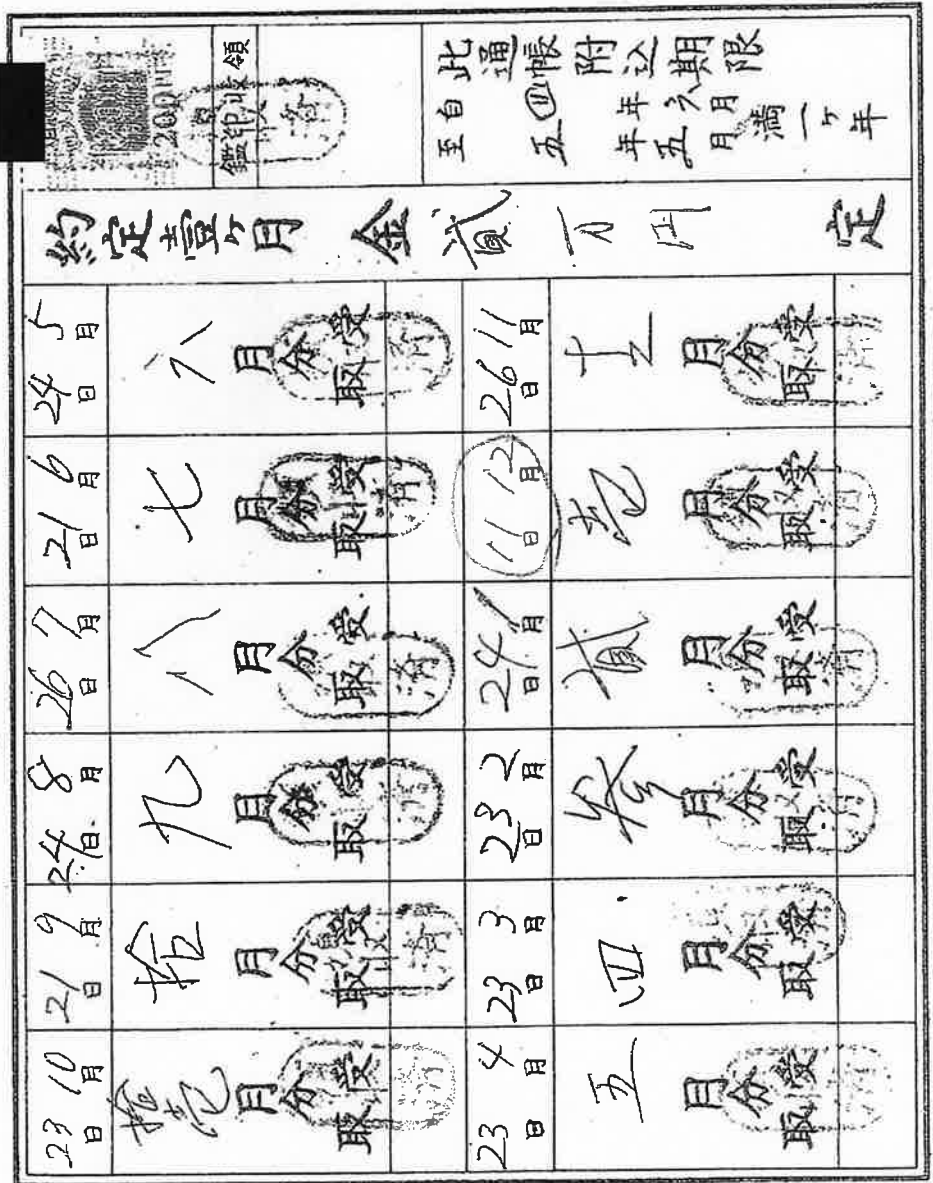 此通帳附込期限
自四年六月
至五年五月
満一ヶ年
領収印鑑
200円
約定壹ヶ月金貮万円定
5月24日 六月分受取
6月21日 七月分受取
7月26日 八月分受取
8月24日 九月分受取
9月21日 拾月分受取
10月23日 拾壱月分受取
11月26日 十二月分受取
12月11日 壱月分受取
1月24日 貮月分受取
2月23日 参月分受取
3月23日 四月分受取
4月23日 五月分受取